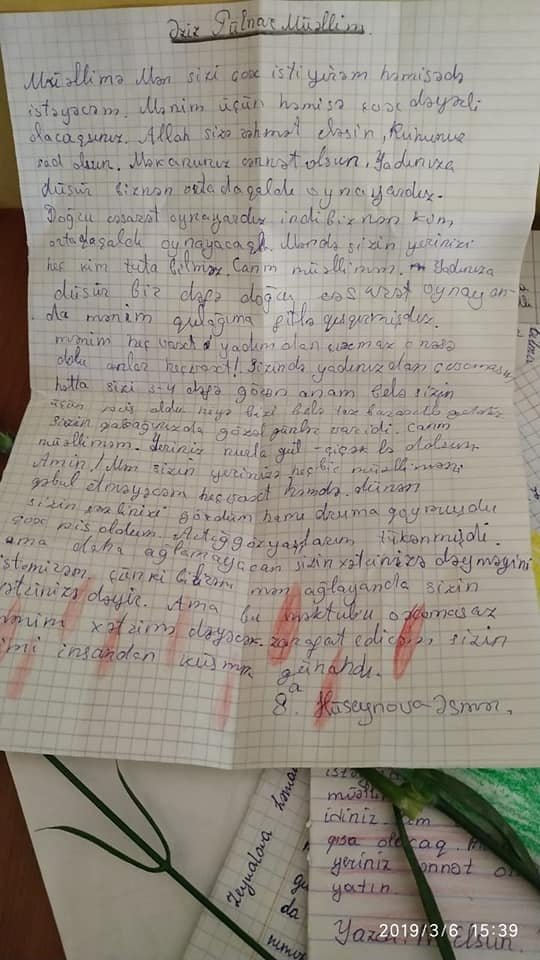 Əziz Gülnar Müəllim.
Müəllimə Mən sizi çox istiyirəm həmişədə
istəyəcəm. Mənim üçün həmişə çox dəyərli
olacaqsınız. Allah sizə rəhmət eləsin, Ruhunuz
şad olsun. Məkanınız cənnət olsun, Yadınıza
düşür biznən ortadaqaldı oynayardız.
Doğru cəsarət oynayardız indi biznən kim
ortadaqaldı oynayacaq. Məndə sizin yerinizi
heç kim tuta bilməz. Canım müəlliməm. Yadınıza
düşür bir dəfə doğru cəsarət oynayan-
da mənim qulağıma
mənim heç vaxt yadımdan çıxmaz
dolu anlar heçvaxt! Sizində yadınızdan çıxmasın,
hətta sizi 3-4 dəfə görən anam belə sizin
üçün pis oldu niyə bizi belə tez
sizin qabağınızda gözəl günlər varidi. Canım
müəlliməm. Yeriniz nurla gül-çiçək lə dolsun
Amin! Mən sizin yerinizə heçbir müəlliməni
qəbul etməyəcəm heçvaxt həmdə. dünən
sizin şəklinizi gördüm
çox pis oldum. Artıq gözyaşlarım tükənmişdi.
ama daha ağlamayacam sizin xətrinizə dəyməyini
istəmirəm, çünki bilirəm mən ağlayanda sizin
xətrinizə dəyir. Ama bu məktubu oxumasaz
mənim xətrimə dəyəcək. zarafat edirəm, sizin
kimi insandan küsmək günahdı.
8a. Hüseynova Əsmər.
Zeynalova
da
müəlli
idiniz.
qısa olacaq.
yeriniz cənnət
yatın.
2019/3/6 15:39